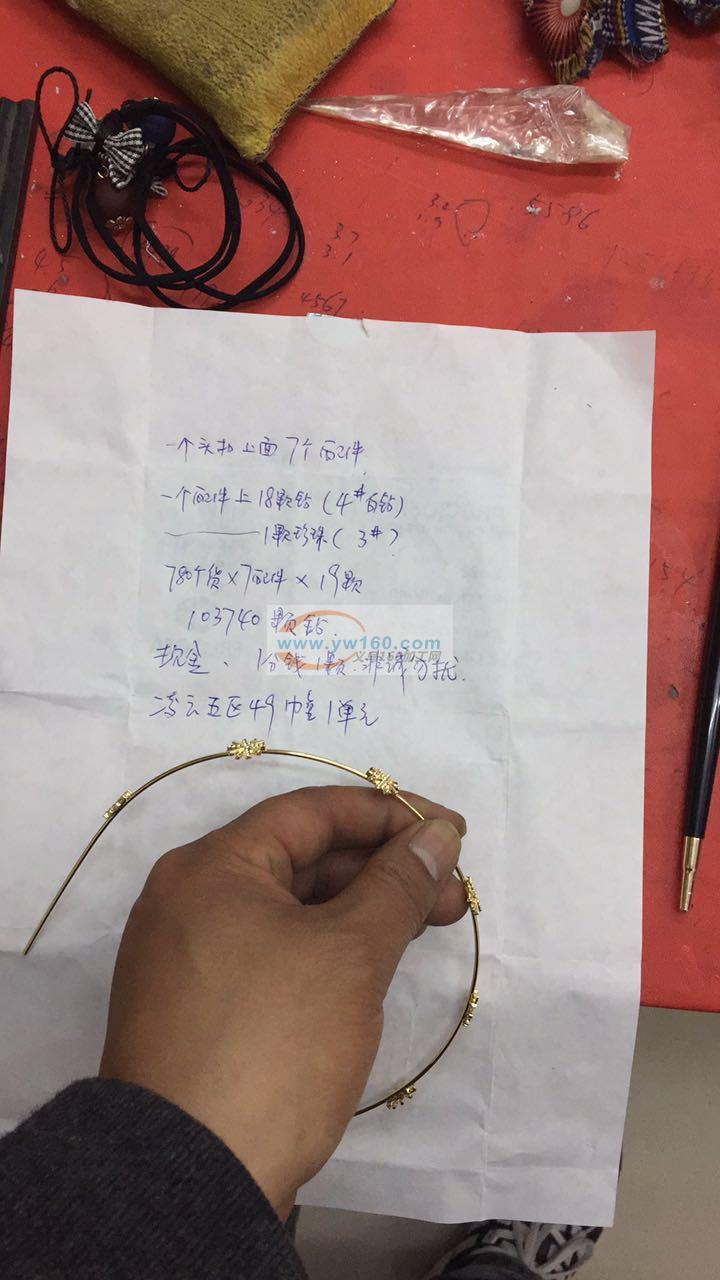 3.2
1.9
5586
3.7
3.1
4.5
4567
一个头扣上面7个配件
一个配件上18颗钻(4#白钻)
———1颗珍珠(3#)
780个货×7配件×19颗
103740颗钻.
www.yw160.com
加工网
现金、1分钱1颗.非诚勿扰.
凌云五区49幢1单元